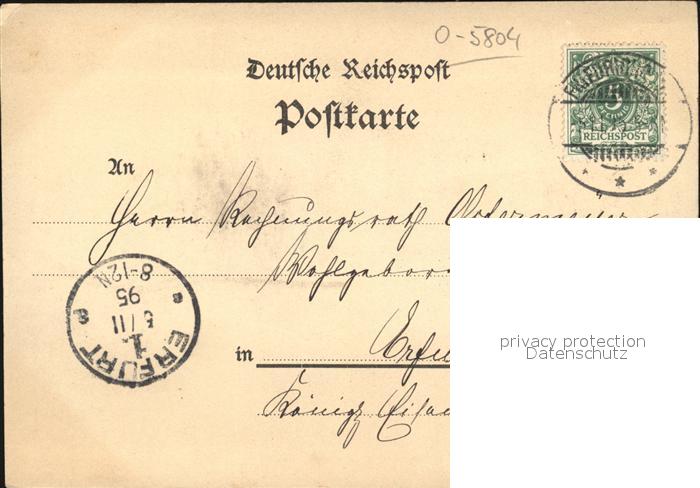 O-5804
Deutsche Reichspost
Postkarte
5
REICHSPOST
An
Herrn Rechnungsrath
Wohlgebor
ERFURT
1.
5/11
95
8-12N
in Erfu
Königl Eisen
privacy protection
Datenschutz